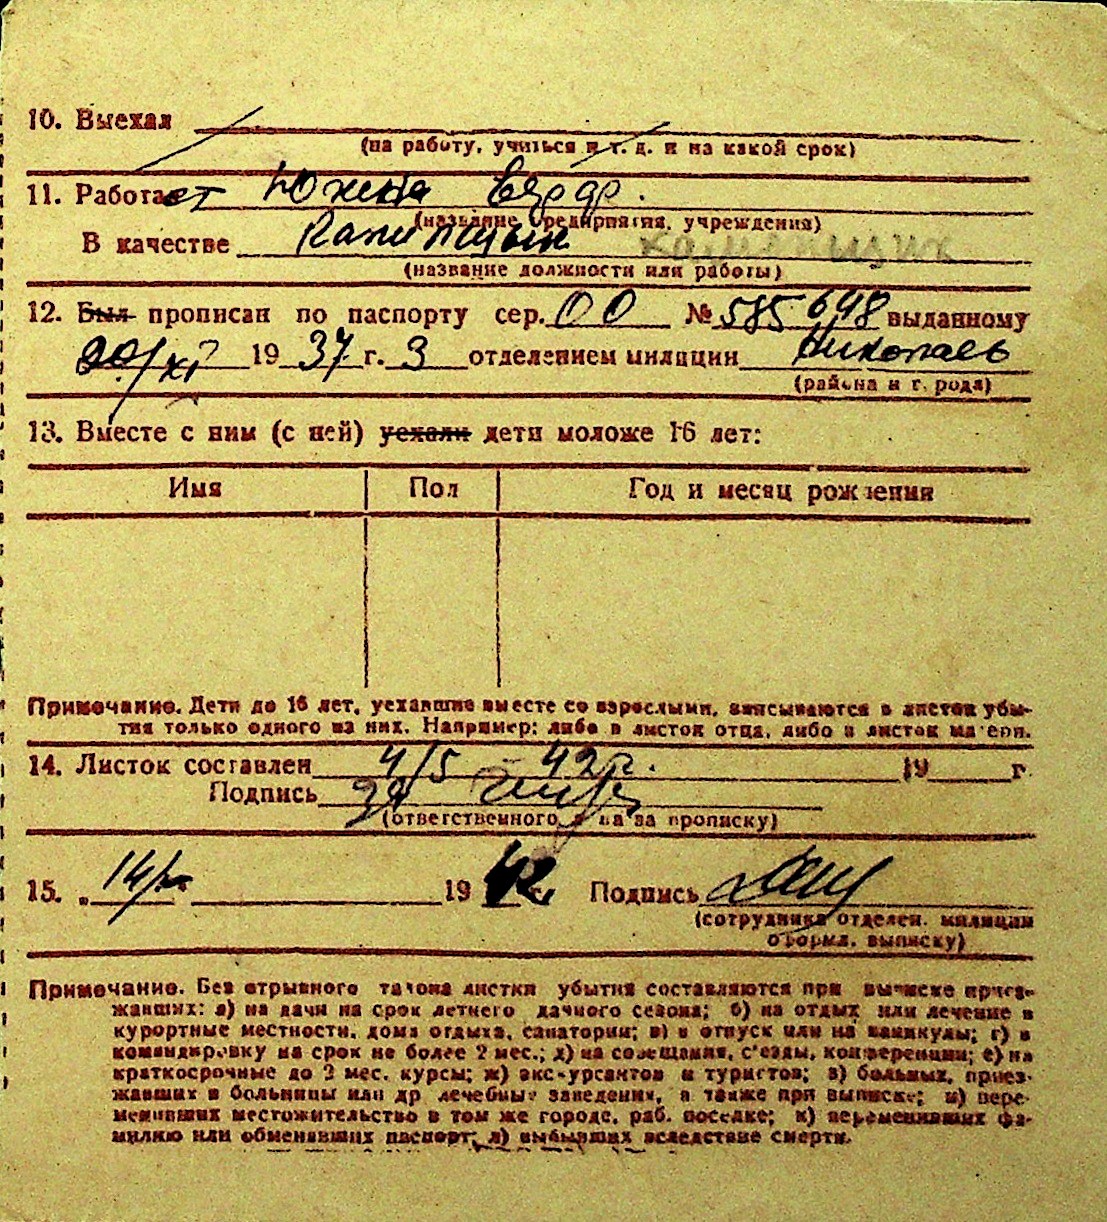 10. Выехал
(на работу, учиться и т. д. и на какой срок)
11. Работает Южная верфь.
(название предприятия, учреждения)
В качестве
(название должности или работы)
12. Был прописан по паспорту сер. ОО № 585648 выданному
20/XI 1937 г. 3 отделением милиции Николаев
(района и города)
13. Вместе с ним (с ней) уехали дети моложе 16 лет:
Имя Пол Год и месяц рождения
Примечание. Дети до 16 лет, уехавшие вместе со взрослыми, вписываются в листок убы-
тия только одного из них. Например: либо в листок отца, либо в листок матери.
14. Листок составлен 4/5 42 г. 19 г.
Подпись
(ответственного лица за прописку)
15. „ 14/ 1942 г. Подпись
(сотрудника отделен. милиции
оформл. выписку)
Примечание. Без отрывного талона листки убытия составляются при выписке приез-
жавших: а) на дачи на срок летнего дачного сезона; б) на отдых или лечение в
курортные местности, дома отдыха, санатории; в) в отпуск или на каникулы; г) в
командировку на срок не более 2 мес.; д) на совещания, с'езды, конференции; е) на
краткосрочные до 2 мес. курсы; ж) экскурсантов и туристов; з) больных, приез-
жавших в больницы или др лечебные заведения, а также при выписке; и) пере-
менивших местожительство в том же городе, раб. поселке; к) переменивших фа-
милию или обменивших паспорт; л) выбывших вследствие смерти.